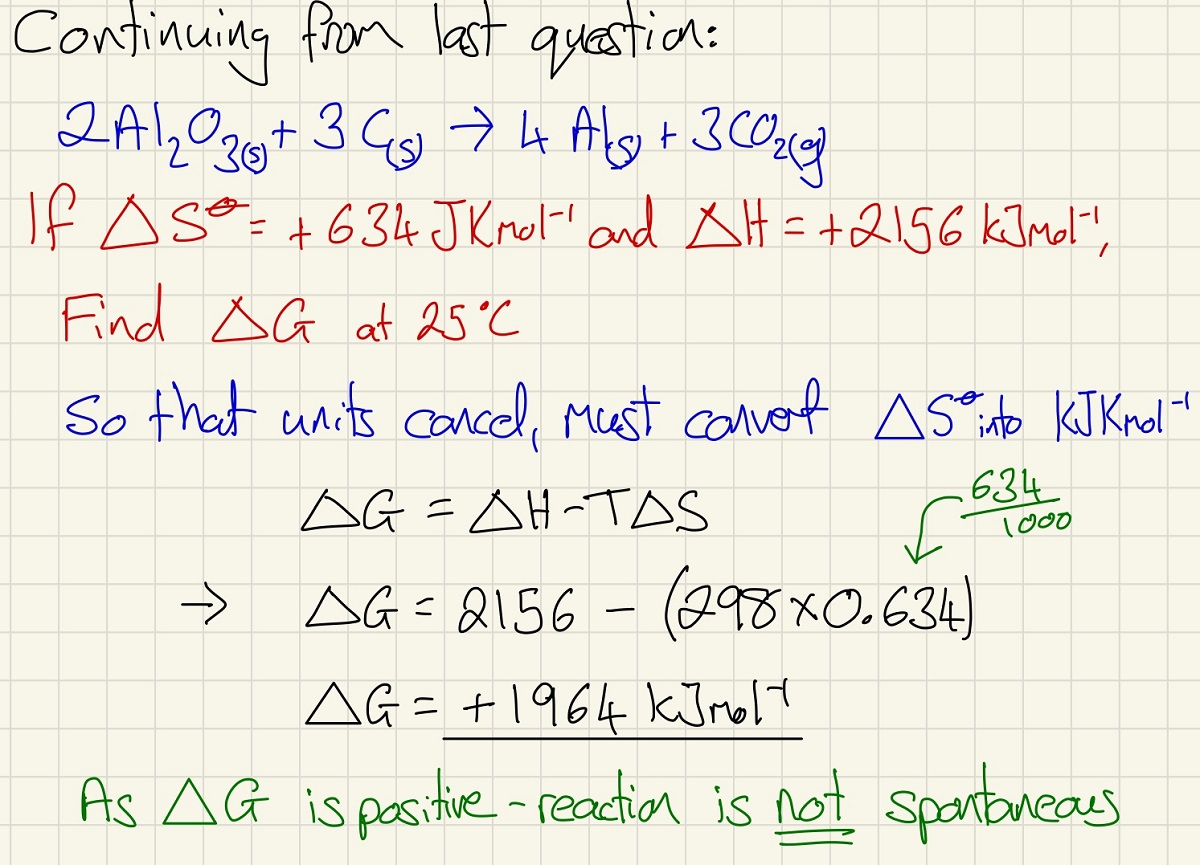 Continuing from last question:
2Al₂O₃(s) + 3 C(s) → 4 Al(s) + 3CO₂(g)
If ΔS⦵ = +634 JKmol⁻¹ and ΔH = +2156 kJmol⁻¹,
Find ΔG at 25°C
So that units cancel, must convert ΔS⦵ into kJKmol⁻¹
ΔG = ΔH - TΔS
634/1000
→ ΔG = 2156 - (298×0.634)
ΔG = +1964 kJmol⁻¹
As ΔG is positive - reaction is not spontaneous